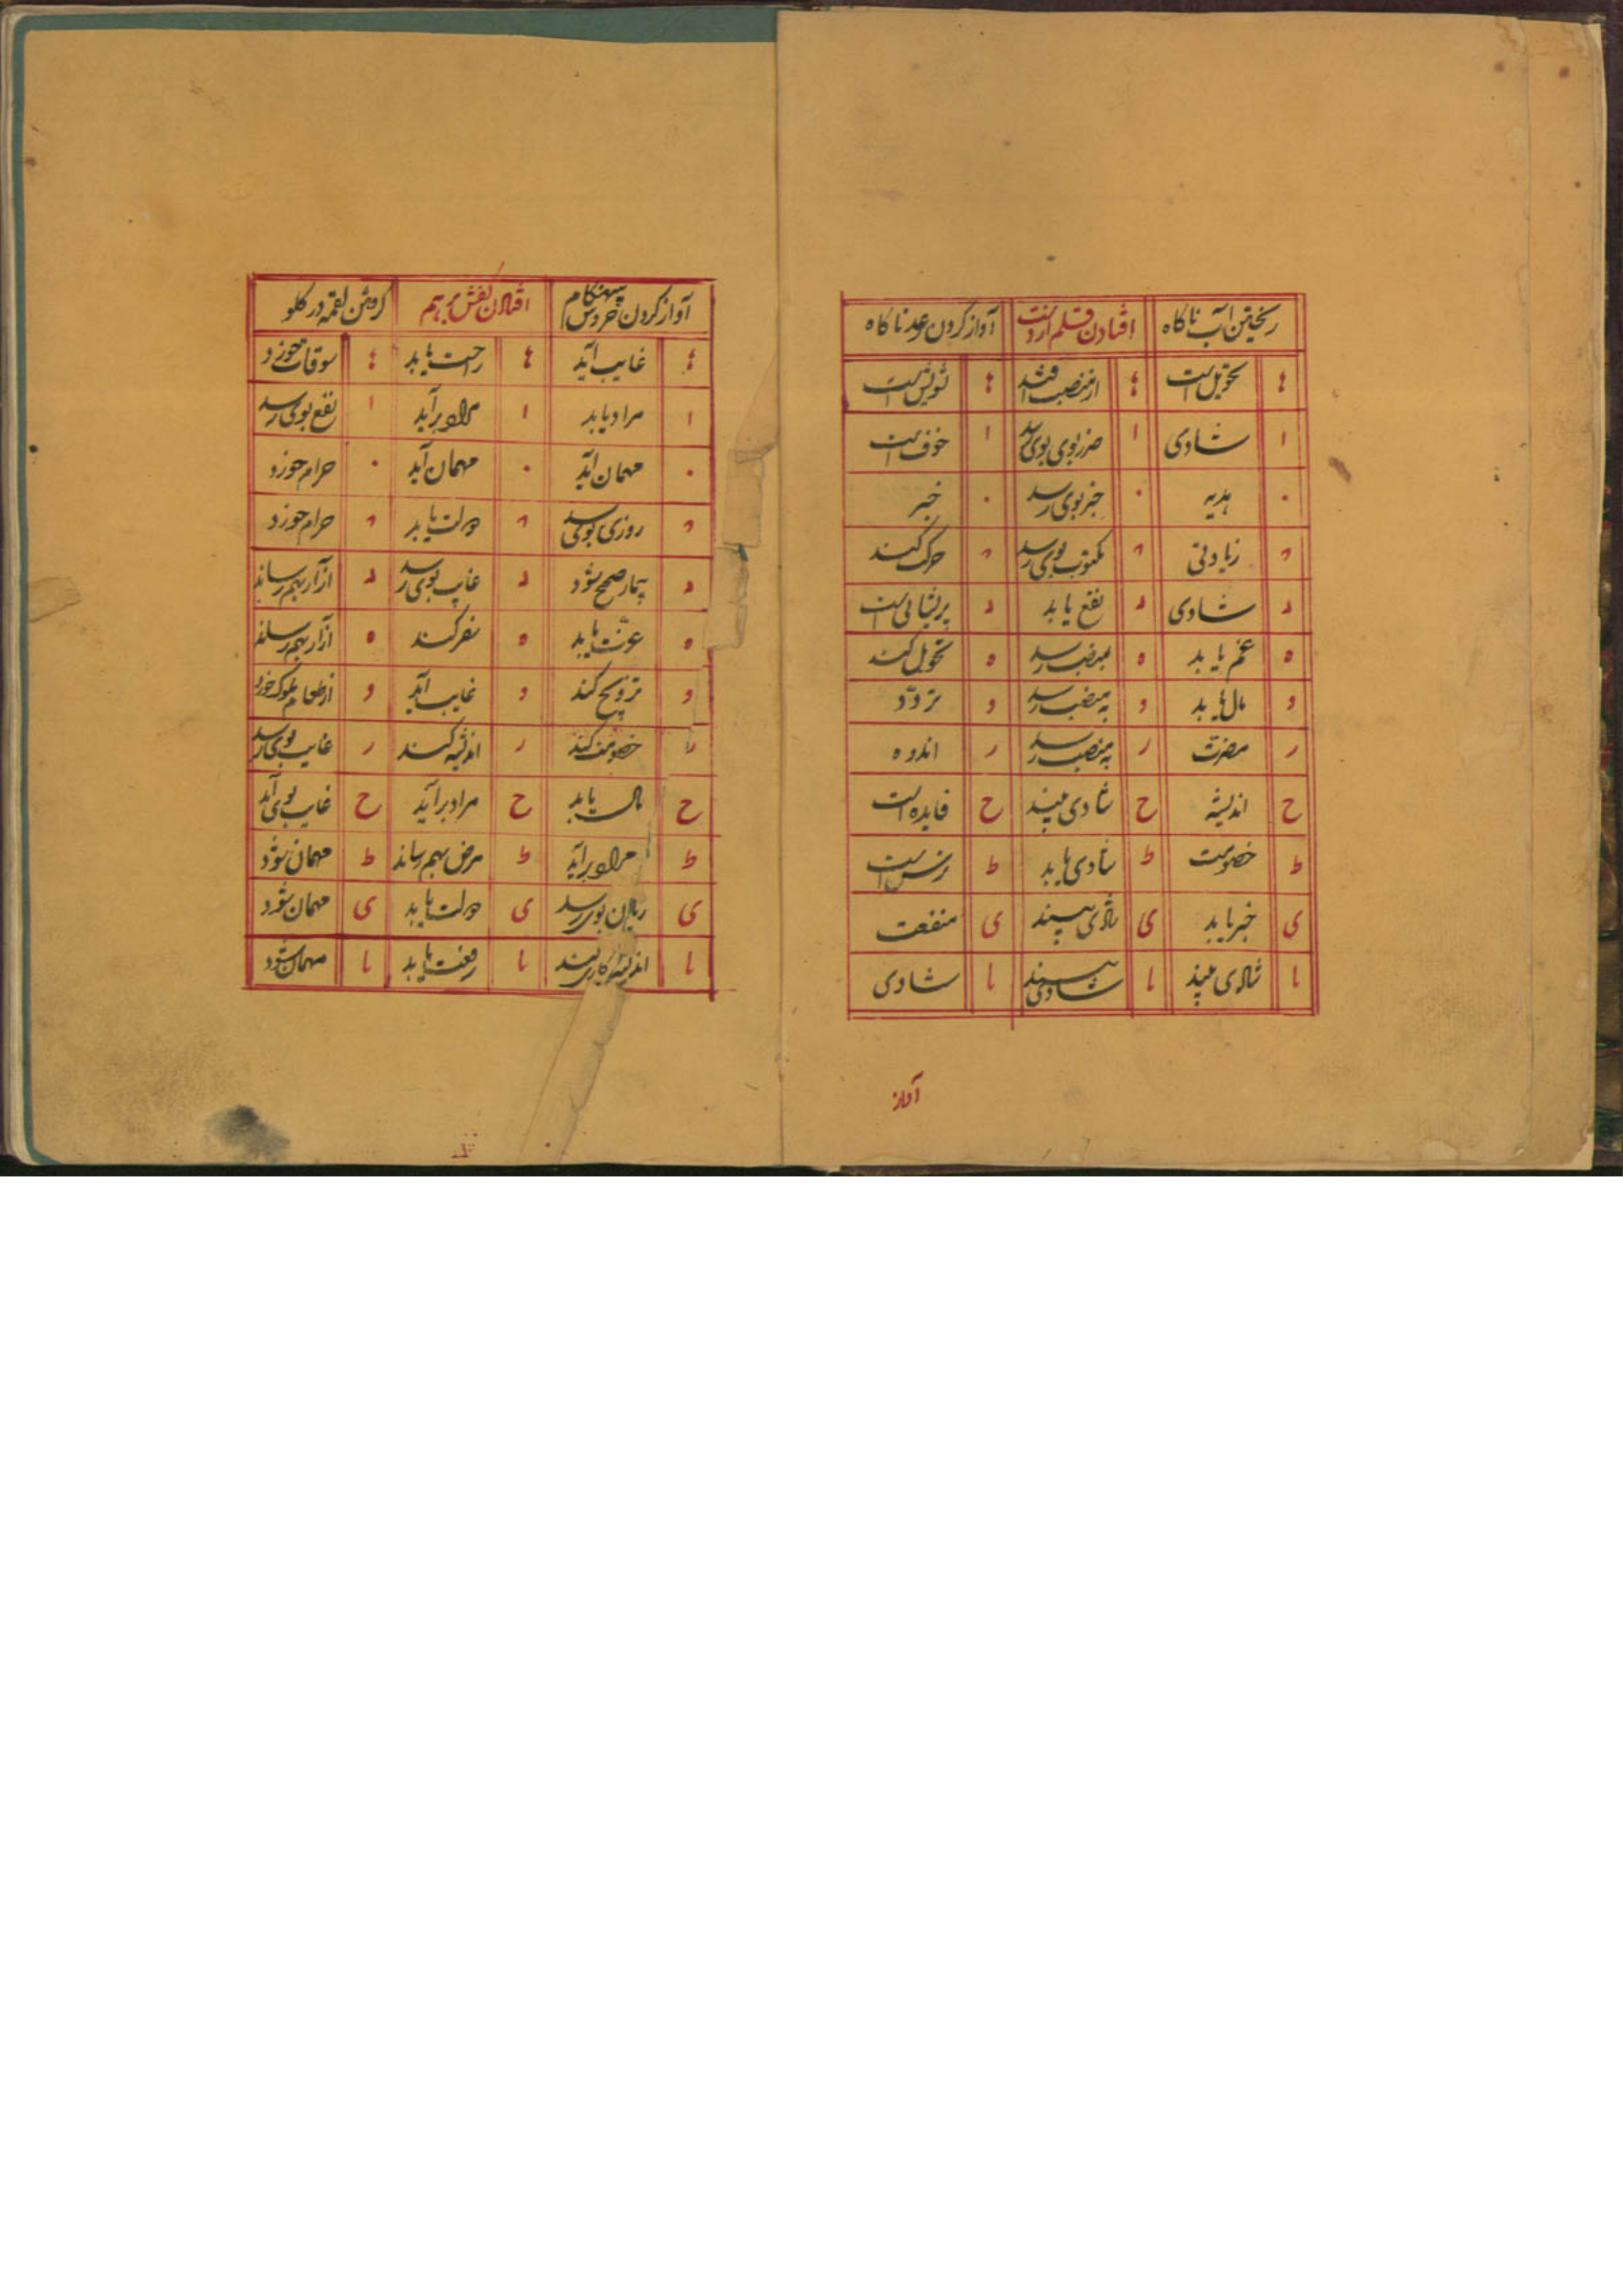 ریختن آب ناکاه | افتادن قلم از دست | آواز کردن رعد ناکاه
تحویل است | از منصب افتد | تشویش است
ا شادی | ا ضرر بوی رسد | ا خوف است
۰ هدیه | ۰ خبر بوی رسد | ۰ خبر
زیادتی | مکتوب بوی رسد | حرکت کند
د شادی | د نفع یابد | د پریشانی است
ه غم یابد | ه بمنصب رسد | ه تحویل کند
و مال یابد | و به منصب رسد | و تردّد
ر مضرت | ر به منصب رسد | ر اندوه
ح اندیشه | ح شادی بیند | ح فایده است
ط خصومت | ط شادی یابد | ط
ی خبر یابد | ی شادی بیند | ی منفعت
یا شادی بیند | یا شادی بیند | یا شادی
آواز
آواز کردن خروس بیهنکام | افتادن کفش بر هم | کرفتن لقمه در کلو
غایب آید | راحت یابد | سوقات خورد
ا مراد یابد | ا مراد برآید | ا نفع بوی رسد
۰ مهمان آید | ۰ مهمان آید | ۰ حرام خورد
روزی بوی رسد | دولت یابد | حرام خورد
د بیمار صحیح شود | د غایب بوی رسد | د آزار بهم رساند
ه عزّت یابد | ه سفر کند | ه آزار بهم رساند
و تزویج کند | و غایب آید | و از طعام ملوک خورد
ر خصومت کند | ر اندیشه کند | ر غایب بوی رسد
ح مال یابد | ح مراد برآید | ح غایب بوی آید
ط مراد برآید | ط مرض بهم رساند | ط مهمان شود
ی زیان بوی رسد | ی دولت یابد | ی مهمان شود
یا اندیشه | یا رفعت یابد | یا مهمان شود